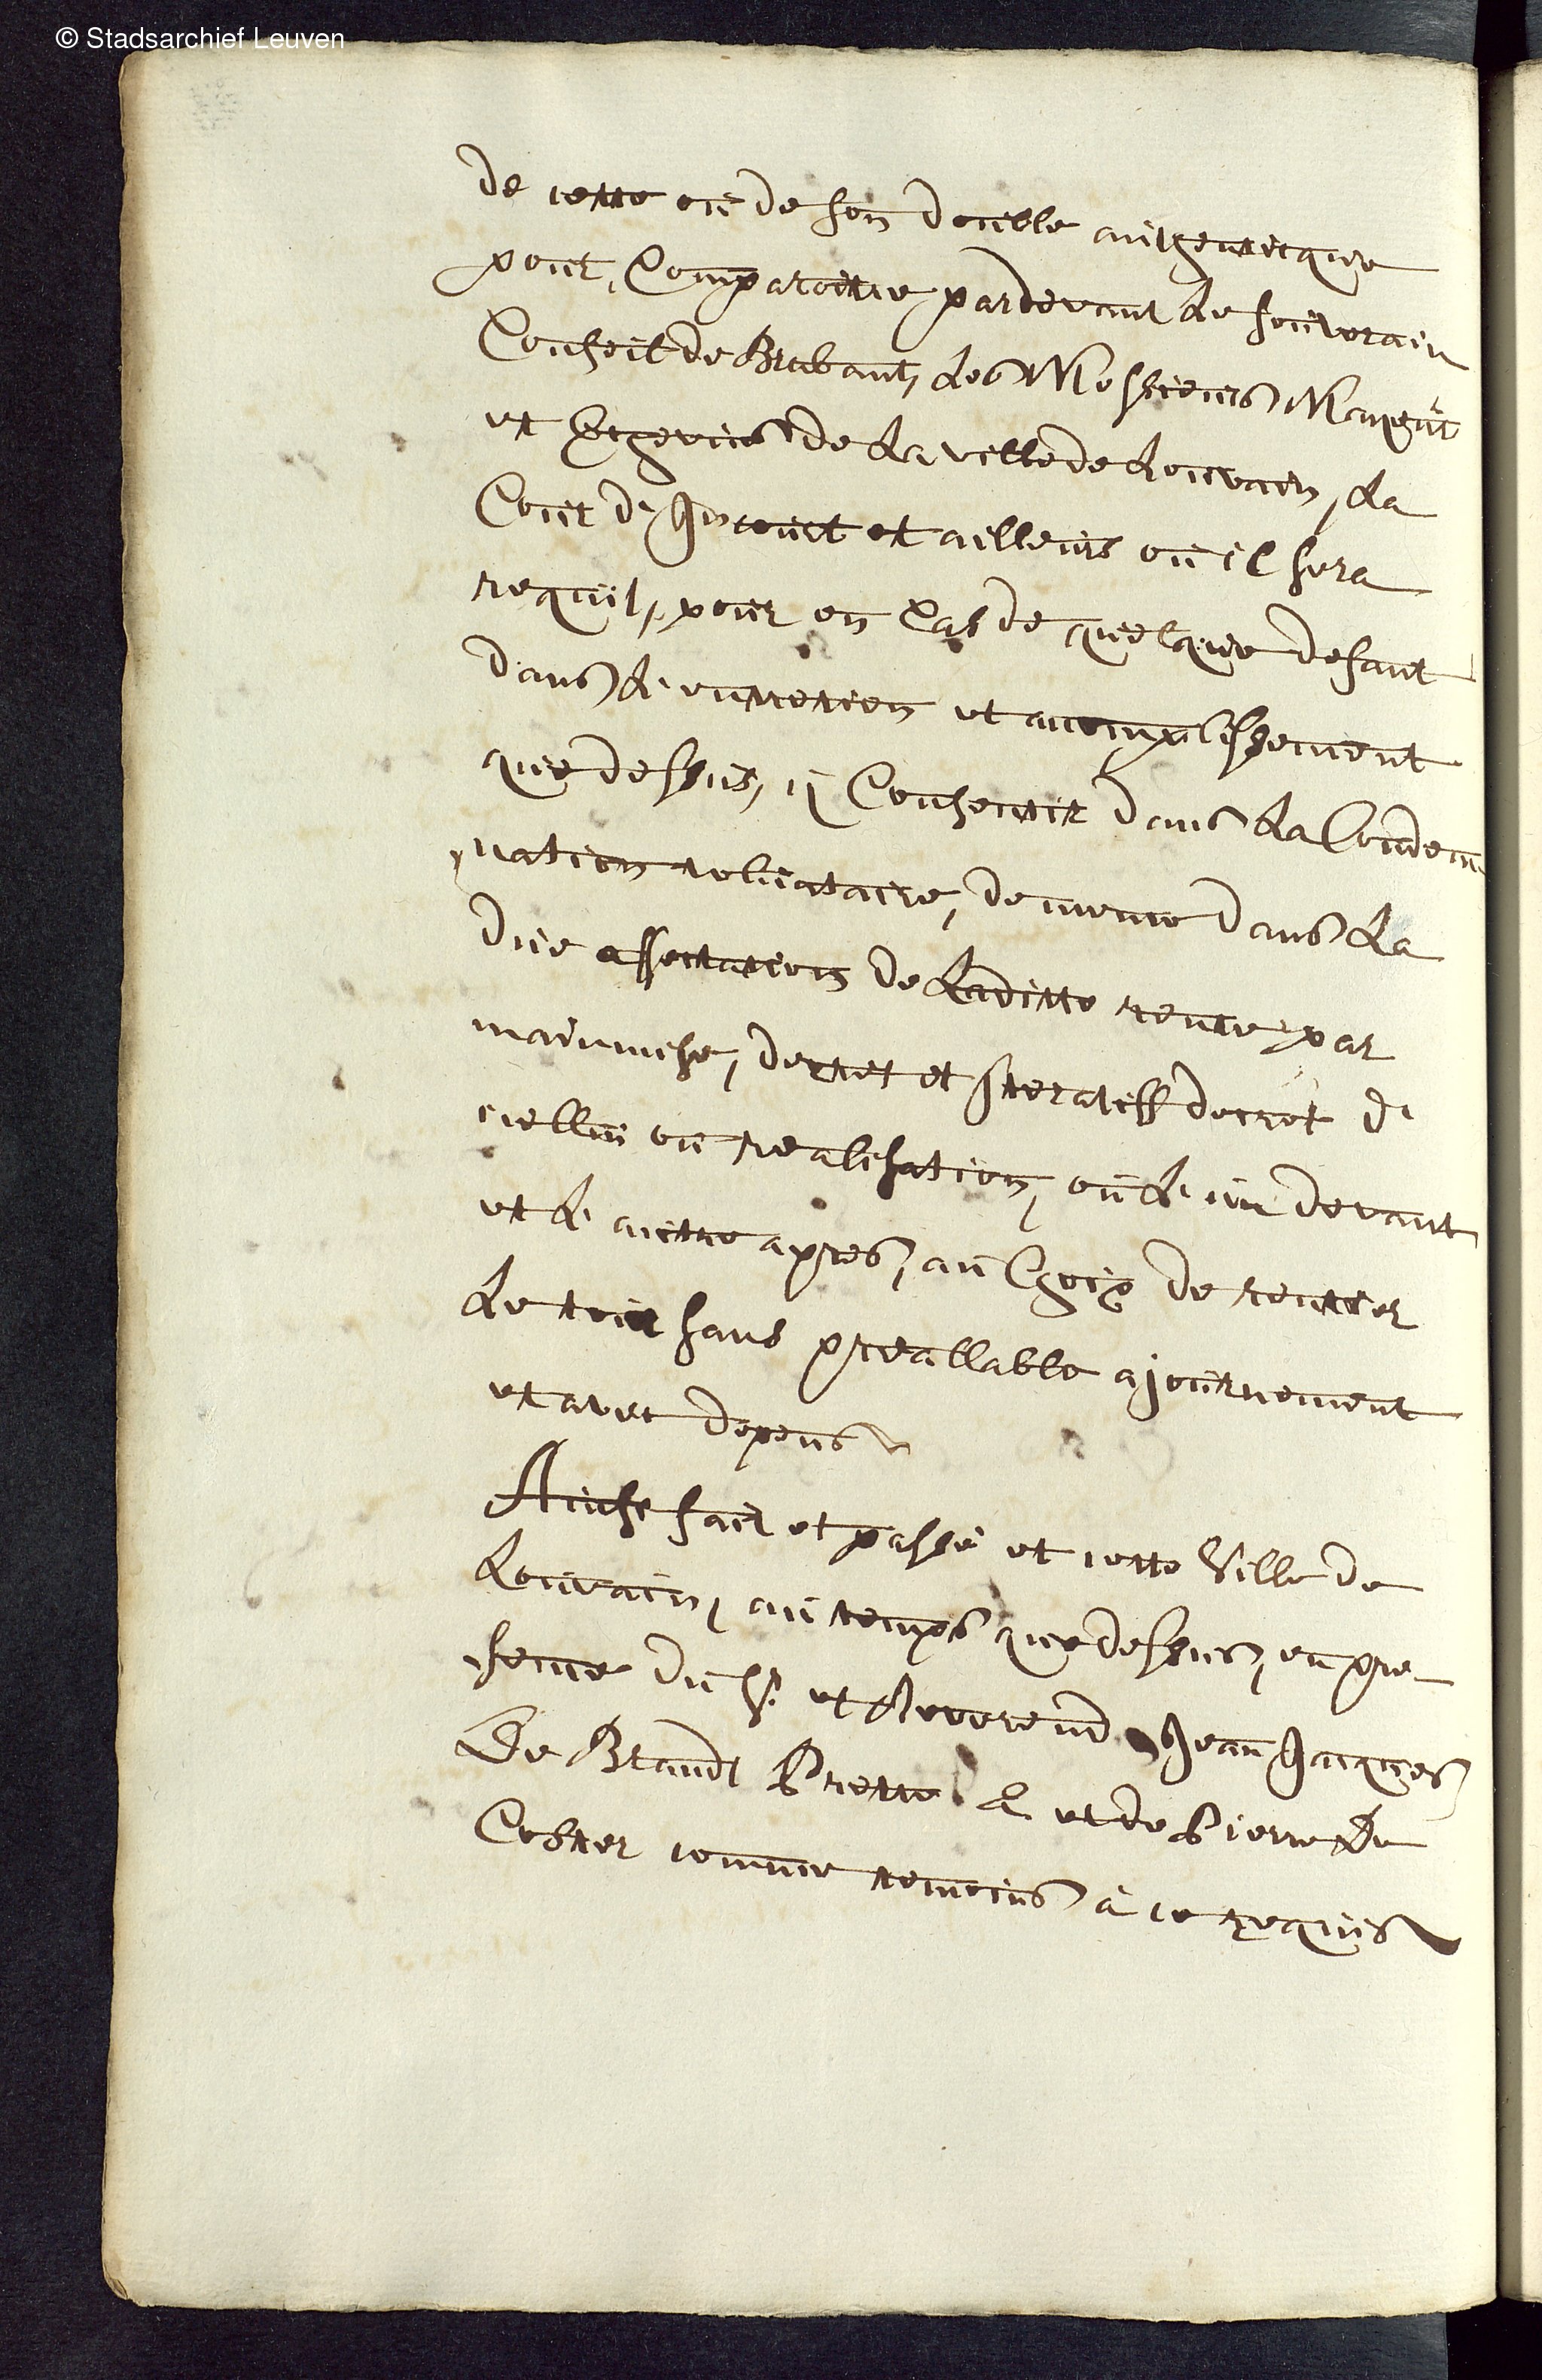 © Stadsarchief Leuven
de cette ou de son double authenticque
pour, Comparoitre pardevant Le souverain
Conseil de Brabant, Les Messieurs
et Echevins de La ville de Louvain, La
Cour d' Incourt et ailleurs ou il sera
requil, pour en Cas de quelque defaut
dans L' entretien et accomplissement
que dessus, ij Consentir dans La Condem
nation volutataire, de meme dans La
due affectation de Laditte rente par
mainmise, decret et Iteratiff decret d'
icelluj ou realisation, ou L' un devant
et L' autre apres, au Choix de rentier
Le toút sans preallable ajournement
et avec depens
Ainse fait et passé et cette Ville de
Louvain, au temps que dessus, en pre
sence du Sr. et Reverend Jean Jacques
De Brandt Prette & et de Pierre De
Coster comme temoins à ce requis